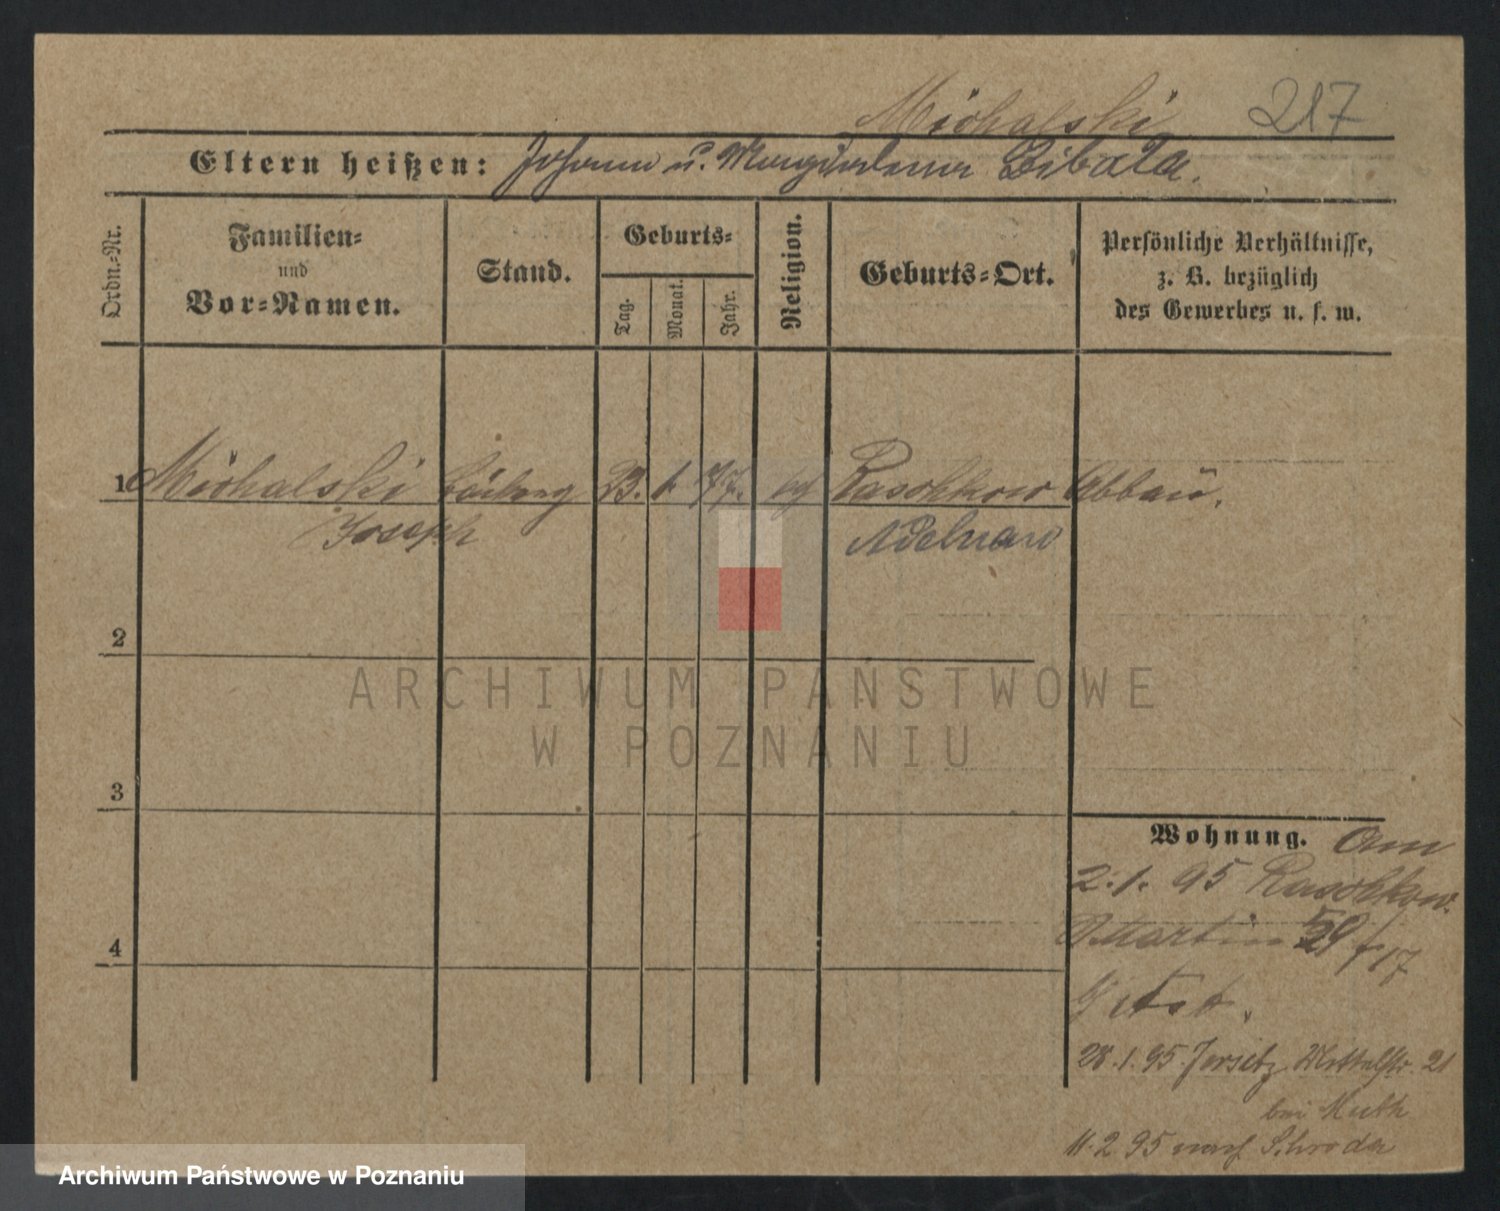 217
Michalski
Eltern heißen: Johann u. Magdalena Cibala.
Ordn.-Nr.
Familien-
und
Vor-Namen.
Stand.
Geburts-
Tag.
Monat.
Jahr.
Religion.
Geburts-Ort.
Persönliche Verhältnisse,
z. B. bezüglich
des Gewerbes u. s. w.
1 Michalski 23. 1. 77. Raschkow Abbau.
Joseph Adelnau
2
3
4
Wohnung. Am
2.1.95 Raschkow.
St Martin 59/17
28.1.95. Jersitz Mittelstr. 21
bei Muth
11.2.95 nach Schroda
ARCHIWUM PAŃSTWOWE
W POZNANIU
Archiwum Państwowe w Poznaniu